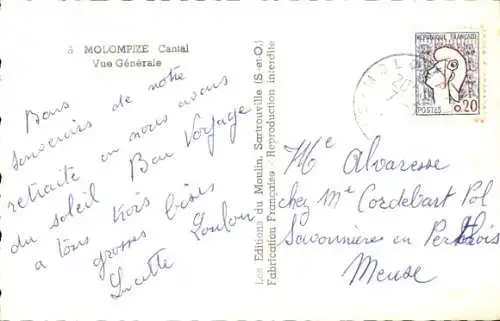 6 MOLOMPIZE Cantal
Vue Générale
Bons
souvenirs de notre
retraite où nous avons
du soleil Bon Voyage
a tous trois
grosses bises
Lucette Loulou
Les Editions du Moulin, Sartrouville (S.-et-O.)
Fabrication Française - Reproduction interdite
REPUBLIQUE FRANÇAISE
0.20
POSTES
Me Alvaresse
chez Me Cordebart Pol
Savonnière en Perthois
Meuse